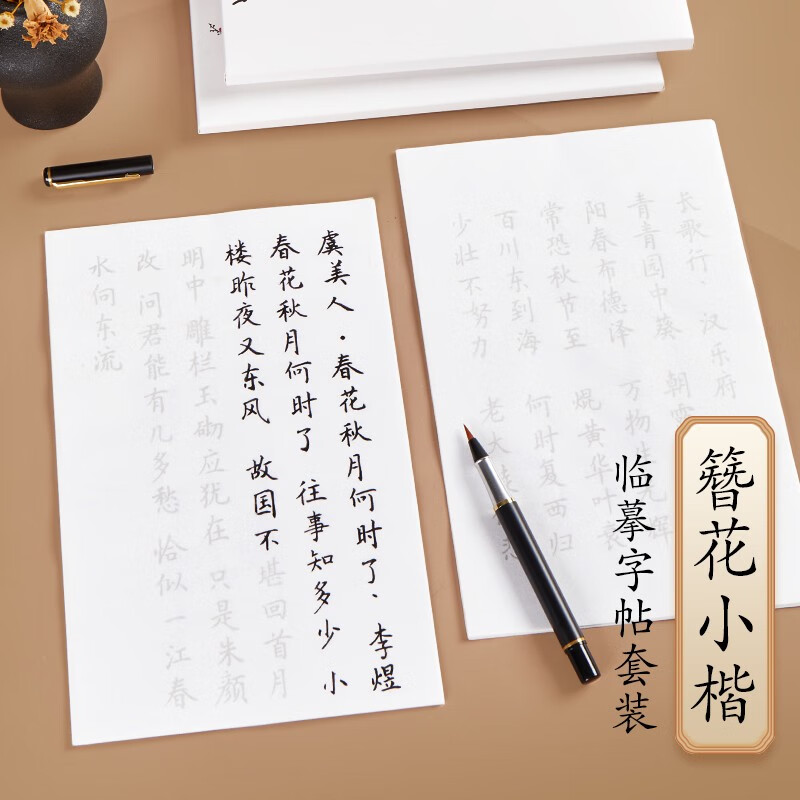 虞美人·春花秋月何时了、李煜
春花秋月何时了 往事知多少 小
楼昨夜又东风 故国不堪回首月
明中 雕栏玉砌应犹在 只是朱颜
改 问君能有几多愁 恰似一江春
水向东流
长歌行、汉乐府
青青园中葵 朝
阳春布德泽 万物生光辉
常恐秋节至 焜黄华叶衰
百川东到海 何时复西归
少壮不努力 老大徒
簪花小楷
临摹字帖套装